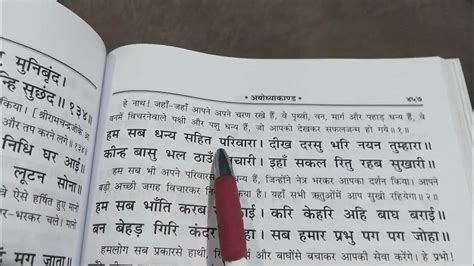 मुनिबृंद।
न्हि सुछंद॥ १३४॥
किया। (श्रीरामचन्द्रजीके आ
और तप करने लगे॥ १३४॥
निधि घर आई॥
लूटन सोना॥
ऐसे हर्षित हुए मानो
अयोध्याकाण्ड
४५७
हे नाथ! जहाँ-जहाँ आपने अपने चरण रखे हैं, वे पृथ्वी, वन, मार्ग और पहाड़ धन्य हैं, वे
वनमें विचरनेवाले पक्षी और पशु धन्य हैं, जो आपको देखकर सफलजन्म हो गये॥ १॥
हम सब धन्य सहित परिवारा। दीख दरसु भरि नयन तुम्हारा॥
कीन्ह बासु भल ठाउँ चारी। इहाँ सकल रितु रहब सुखारी॥
हम सब भी अपने परिवार धन्य हैं, जिन्होंने नेत्र भरकर आपका दर्शन किया। आपने
बड़ी अच्छी जगह विचारकर किया है। यहाँ सभी ऋतुओंमें आप सुखी रहियेगा॥
हम सब भाँति करब सेवकाई। करि केहरि अहि बाघ बराई॥
बन बेहड़ गिरि कंदर खोहा। सब हमार प्रभु पग पग जोहा॥
मग जोहा।
हमलोग सब प्रकारसे हाथी, और बाघोंसे बचाकर आपकी सेवा करेंगे। हे प्रभो!